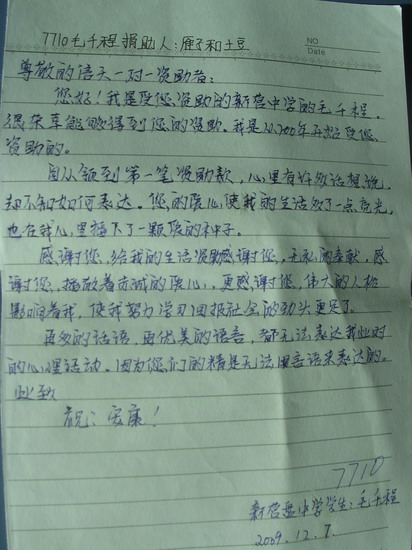 7710毛千程 捐助人:雁子和土豆
NO
Date
尊敬的语天一对一资助者:
您好!我是受您资助的新营中学的毛千程,
很荣幸能够得到您的资助。我是从200年开始受您
资助的。
自从领到第一笔资助款,心里有许多话想说,
却不知如何表达。您的爱心使我的生活多了一点亮光,
也在我心里播下了一颗爱的种子。
感谢您,给我的生活资助感谢您,无私的奉献,感
谢您,播散着真诚的爱心,更感谢您,伟大的人格
影响着我,使我努力学习回报社会的劲头更足了。
再多的话语,再优美的语言,都无法表达我此时
的心里活动。因为您们的精是无法用言语来表达的。
此致
祝:安康!
7710
新营盘中学学生:毛千程
2009.12.7.